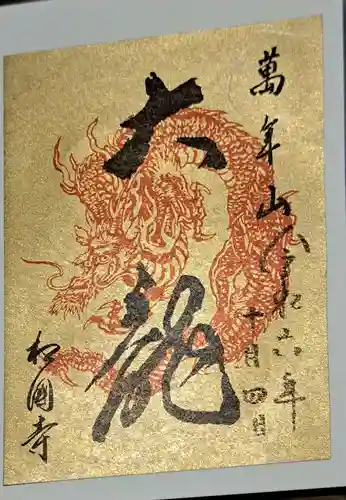 萬年山 令和六年
十月四日
大龍
相國寺